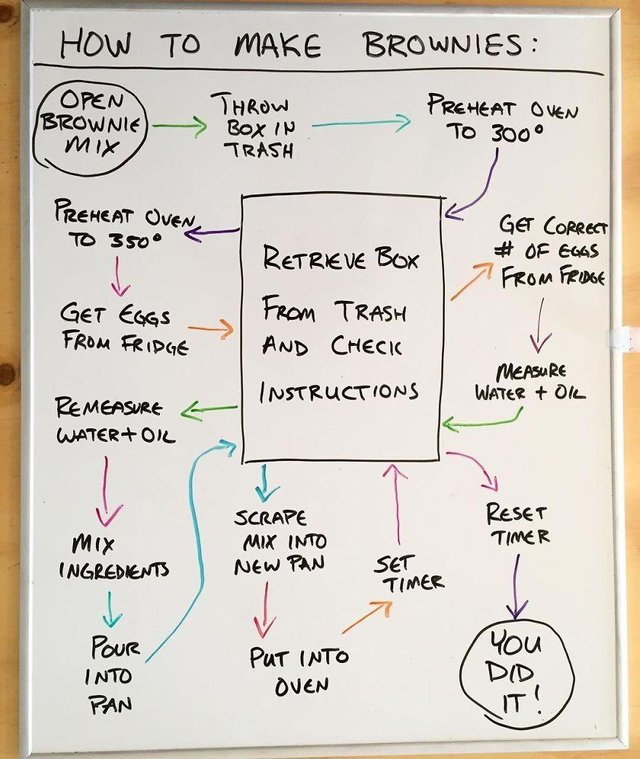 HOW TO MAKE BROWNIES:
OPEN
BROWNIE
MIX
THROW
BOX IN
TRASH
PREHEAT OVEN
TO 300°
RETRIEVE BOX
FROM TRASH
AND CHECK
INSTRUCTIONS
PREHEAT OVEN
TO 350°
GET EGGS
FROM FRIDGE
GET CORRECT
# OF EGGS
FROM FRIDGE
MEASURE
WATER + OIL
REMEASURE
WATER + OIL
MIX
INGREDIENTS
POUR
INTO
PAN
SCRAPE
MIX INTO
NEW PAN
PUT INTO
OVEN
SET
TIMER
RESET
TIMER
YOU
DID
IT!